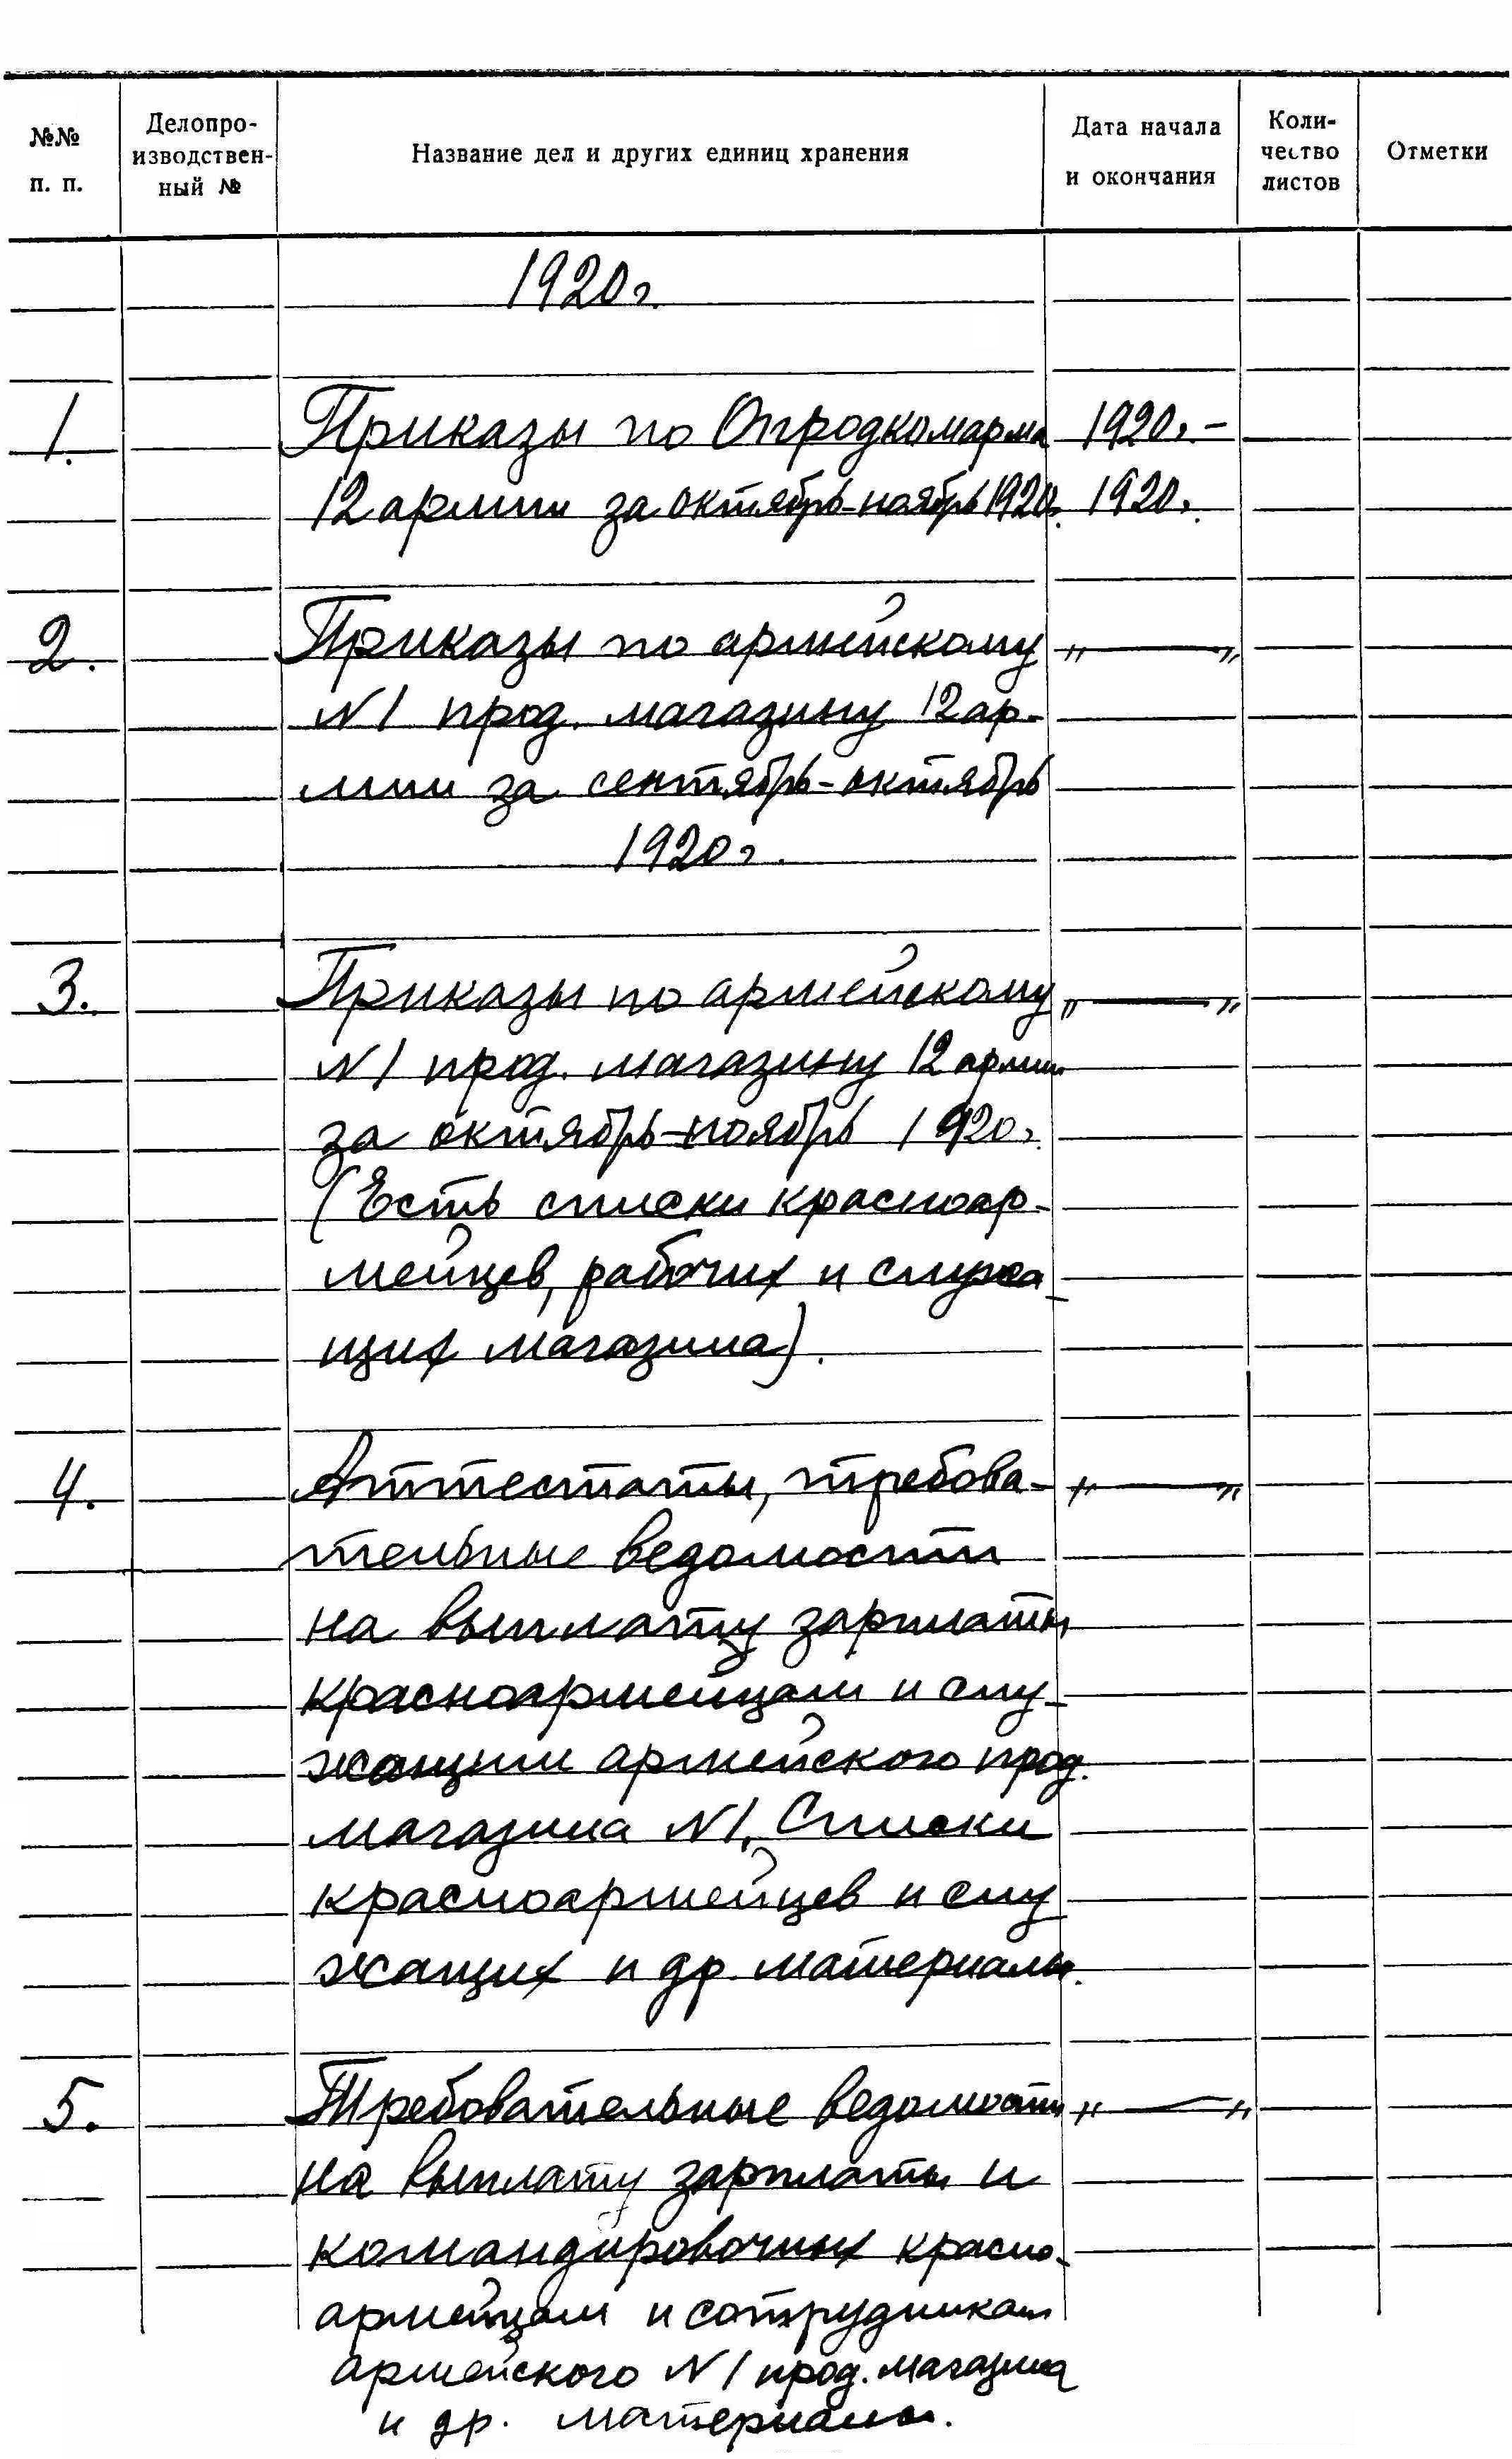 №№ п. п. Делопро- изводствен- ный № Название дел и других единиц хранения Дата начала и окончания Коли- чество листов Отметки
1920г.
1. Приказы по Опродкомарма 1920г.-
12 армии за октябрь-ноябрь 1920г. 1920г.
2. Приказы по армейскому „ — „
N1 прод. магазину 12 ар-
мии за сентябрь-октябрь
1920г.
3. Приказы по армейскому „ — „
N1 прод. магазину 12 армии
за октябрь-ноябрь 1920г.
(Есть списки красноар-
мейцев, рабочих и служа-
щих магазина).
4. Аттестаты, требова- „ — „
тельные ведомости
на выплату зарплаты
красноармейцам и слу-
жащим армейского прод.
магазина N1. Списки
красноармейцев и слу
жащих и др. материалы.
5. Требовательные ведомости „ — „
на выплату зарплаты и
командировочных красно-
армейцам и сотрудникам
армейского N1 прод. магазина
и др. материалы.